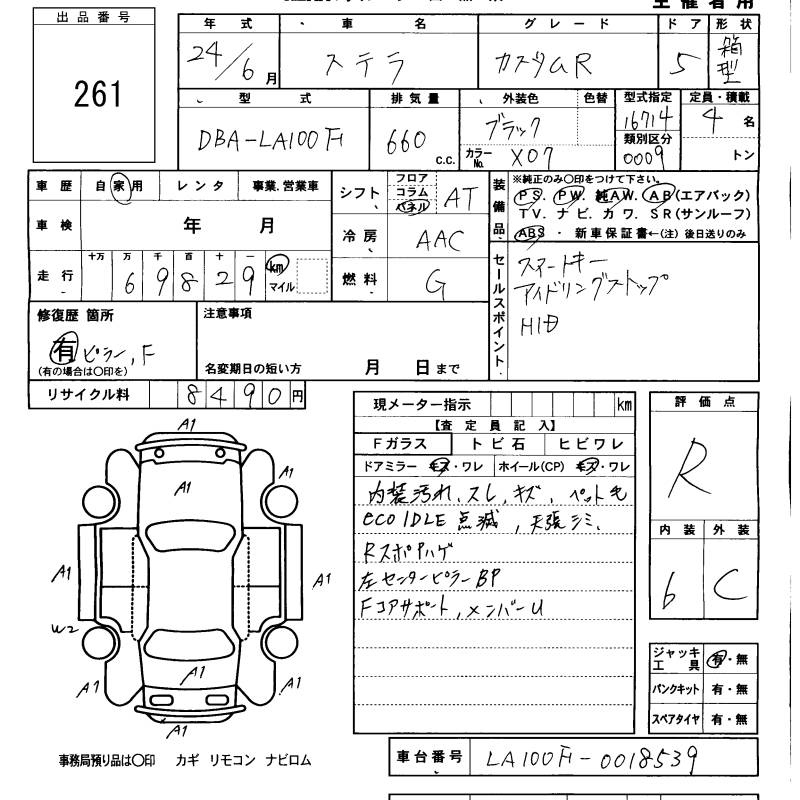 出品番号
261
年式 車名 グレード ドア 形状
24/6月 ステラ カスタムR 5 箱型
型式 排気量 外装色 色替 型式指定 定員・積載
DBA-LA100F 660 c.c. ブラック 16714 4名
カラーNo. X07 類別区分 0009 トン
車歴 自家用 レンタ 事業.営業車
シフト フロア コラム パネル AT
装備品 ※純正のみ○印をつけて下さい。
PS. PW. 純AW. AB(エアバック)
TV. ナビ. カワ. SR(サンルーフ)
ABS ・ 新車保証書←(注) 後日送りのみ
車検 年 月
冷房 AAC
走行 十万 万 千 百 十 一 km マイル
69829
燃料 G
セールスポイント
スマートキー
アイドリングストップ
HID
修復歴 箇所
有 ピラー, F
(有の場合は○印を)
注意事項
名変期日の短い方 月 日まで
リサイクル料 8490円
現メーター指示 km
【査定員記入】
Fガラス トビ石 ヒビワレ
ドアミラー キズ・ワレ ホイール(CP) キズ・ワレ
内装汚れ、スレ、キズ、ペット毛
eco IDLE 点滅, 天張シミ、
Rスポアハゲ
左センターピラーBP
Fコアサポート,メンバーU
評価点
R
内装 外装
6 C
ジャッキ工具 有・無
パンクキット 有・無
スペアタイヤ 有・無
A1
A1
A1
A1
A1
A1
W2
A1
A1
A1
A1
事務局預り品は○印 カギ リモコン ナビロム
車台番号 LA100F-0018539